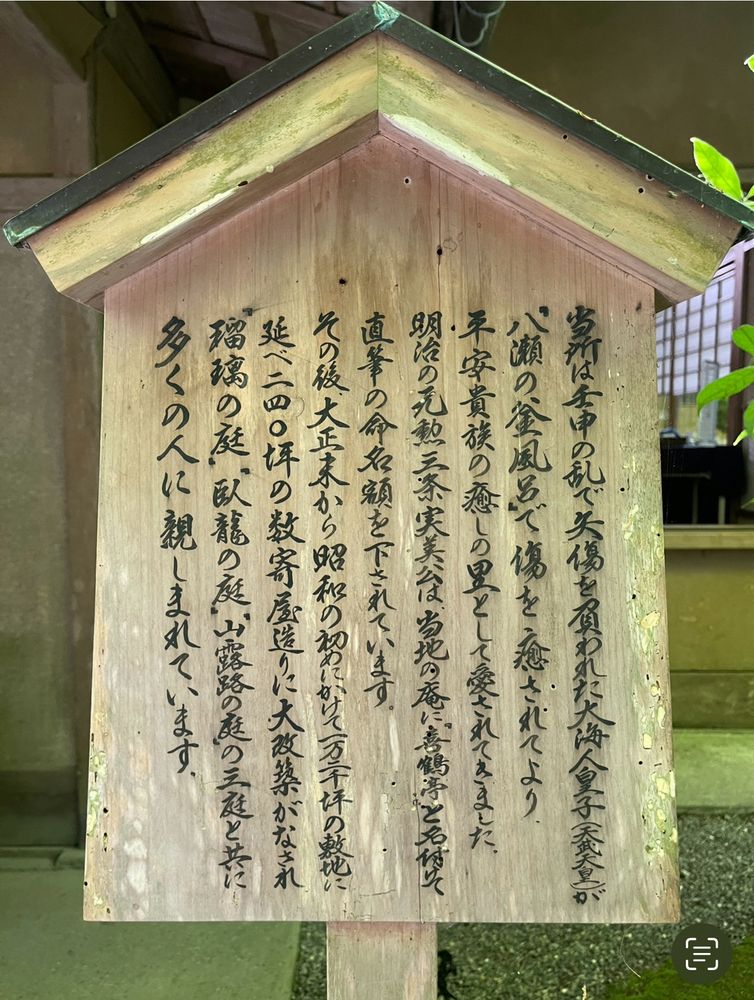 当所は壬申の乱で矢傷を負われた大海人皇子(天武天皇)が
『八瀬の釜風呂』で傷を癒されてより、
平安貴族の癒しの里として愛されてきました。
明治の元勲三条実美公は、当地の庵に『喜鶴亭』と名付けて
直筆の命名額を下されています。
その後、大正末から昭和の初めにかけて一万二千坪の敷地に
延べ二四〇坪の数寄屋造りに大改築がなされ
『瑠璃の庭』『臥龍の庭』『山露路の庭』の三庭と共に
多くの人に親しまれています。